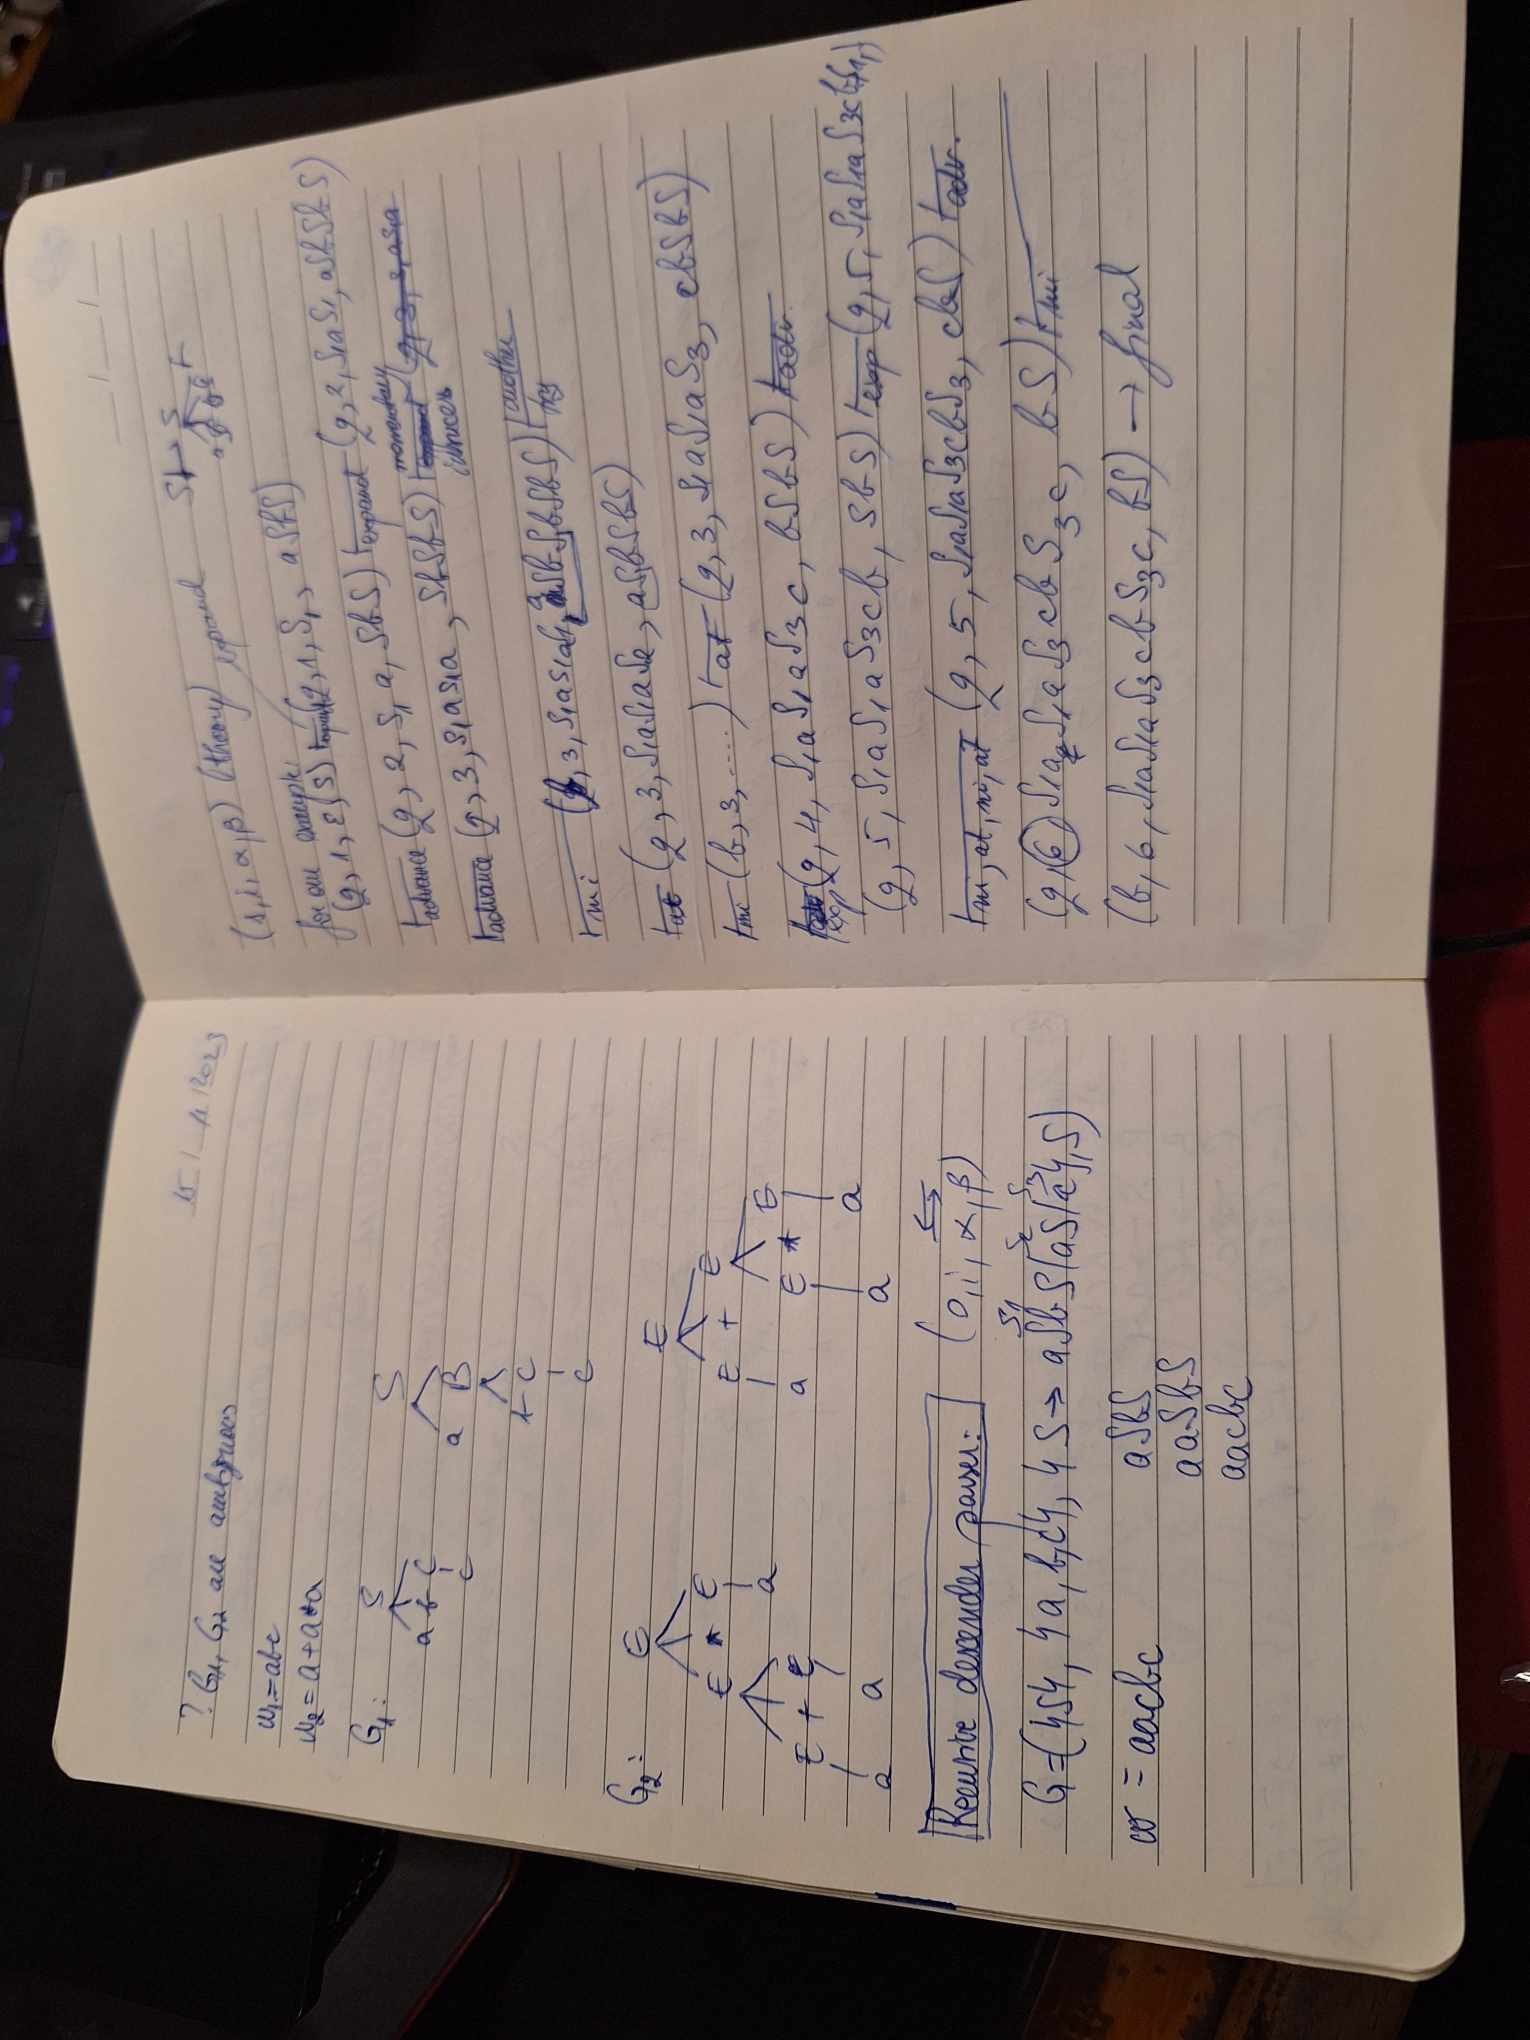 15 / 11 / 2023
? G1, G2 are ambiguous
w1 = abc
w2 = a+a*a
G1: S S
a b C a B
c b C
c
G2: E E
E * E E + E
E + E a a E * E
a a a a
Recursive descender parser: (s, i, α, β)
S1 S2 S3
G = ({S}, {a, b, c}, {S → aSbS | aS | c}, S)
w = aacbc aSbS
aaSbS
aacbc
__ / __ / __
(s, i, α, β) (theory) expand
for our example:
(q, 1, ε, S) ⊢expand (q, 1, S1, aSbS)
⊢advance (q, 2, S1 a, SbS) ⊢expand (q, 2, S1aS1, aSbSbS)
⊢advance (q, 3, S1aS1a, SbSbS) ⊢momentary insucces
⊢mi (b, 3, S1aS1aS1, aSbSbSbS) ⊢another try
⊢at (q, 3, S1aS1aS2, aSbSbS)
⊢mi (b, 3, ....) ⊢at (q, 3, S1aS1aS3, cbSbS)
⊢exp (q, 4, S1aS1aS3c, bSbS) ⊢adv.
(q, 5, S1aS1aS3cb, SbS) ⊢exp (q, 5, S1aS1aS3cbS1,)
⊢mi, at, mi, at (q, 5, S1aS1aS3cbS3, cbS) ⊢adv.
(q, 6, S1aS1aS3cbS3c, bS) ⊢mi
(b, 6, S1aS1aS3cbS3c, bS) → final